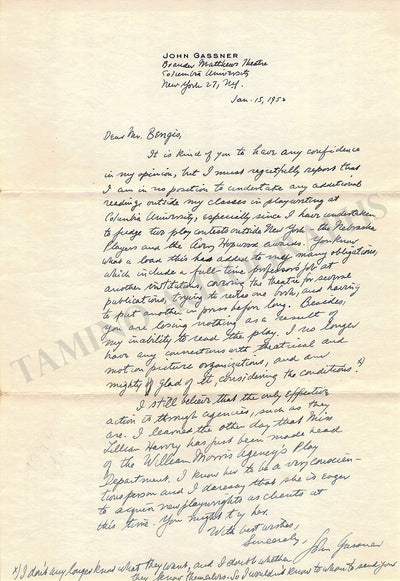 JOHN GASSNER
Brander Matthews Theatre
Columbia University
New York 27, N.Y.
Jan. 15, 1952
Dear Mr. Bengis,
It is kind of you to have any confidence
in my opinion, but I must regretfully report that
I am in no position to undertake any additional
reading outside my classes in playwriting at
Columbia University, especially since I have undertaken
to judge two play contests outside New York - the Nebraska
Players and the Avery Hopwood awards. You know
what a load this has added to my many obligations,
which include a full-time professor's job at
another institution, covering the theatre for several
publications, trying to revise one book, and having
to put another in press before long. Besides,
you're losing nothing as a result of
my inability to read the play. I no longer
have any connections with theatrical and
motion picture organizations, and am
mighty glad of it, considering the conditions. *)
I still believe that the only effective
action is through agencies, such as they
are. I learned the other day that Miss
Lillian Harvry has just been made head
of the William Morris Agency's Play
Department. I know her to be a very conscien-
tious person and I daresay that she is eager
to acquire new playwrights as clients at
this time. You might try her.
With best wishes,
Sincerely,
John Gassner
*) I don't any longer know what they want, and I doubt whether
they know themselves. So I wouldn't know to whom to send your
TAMINO AUTOGRAPHS